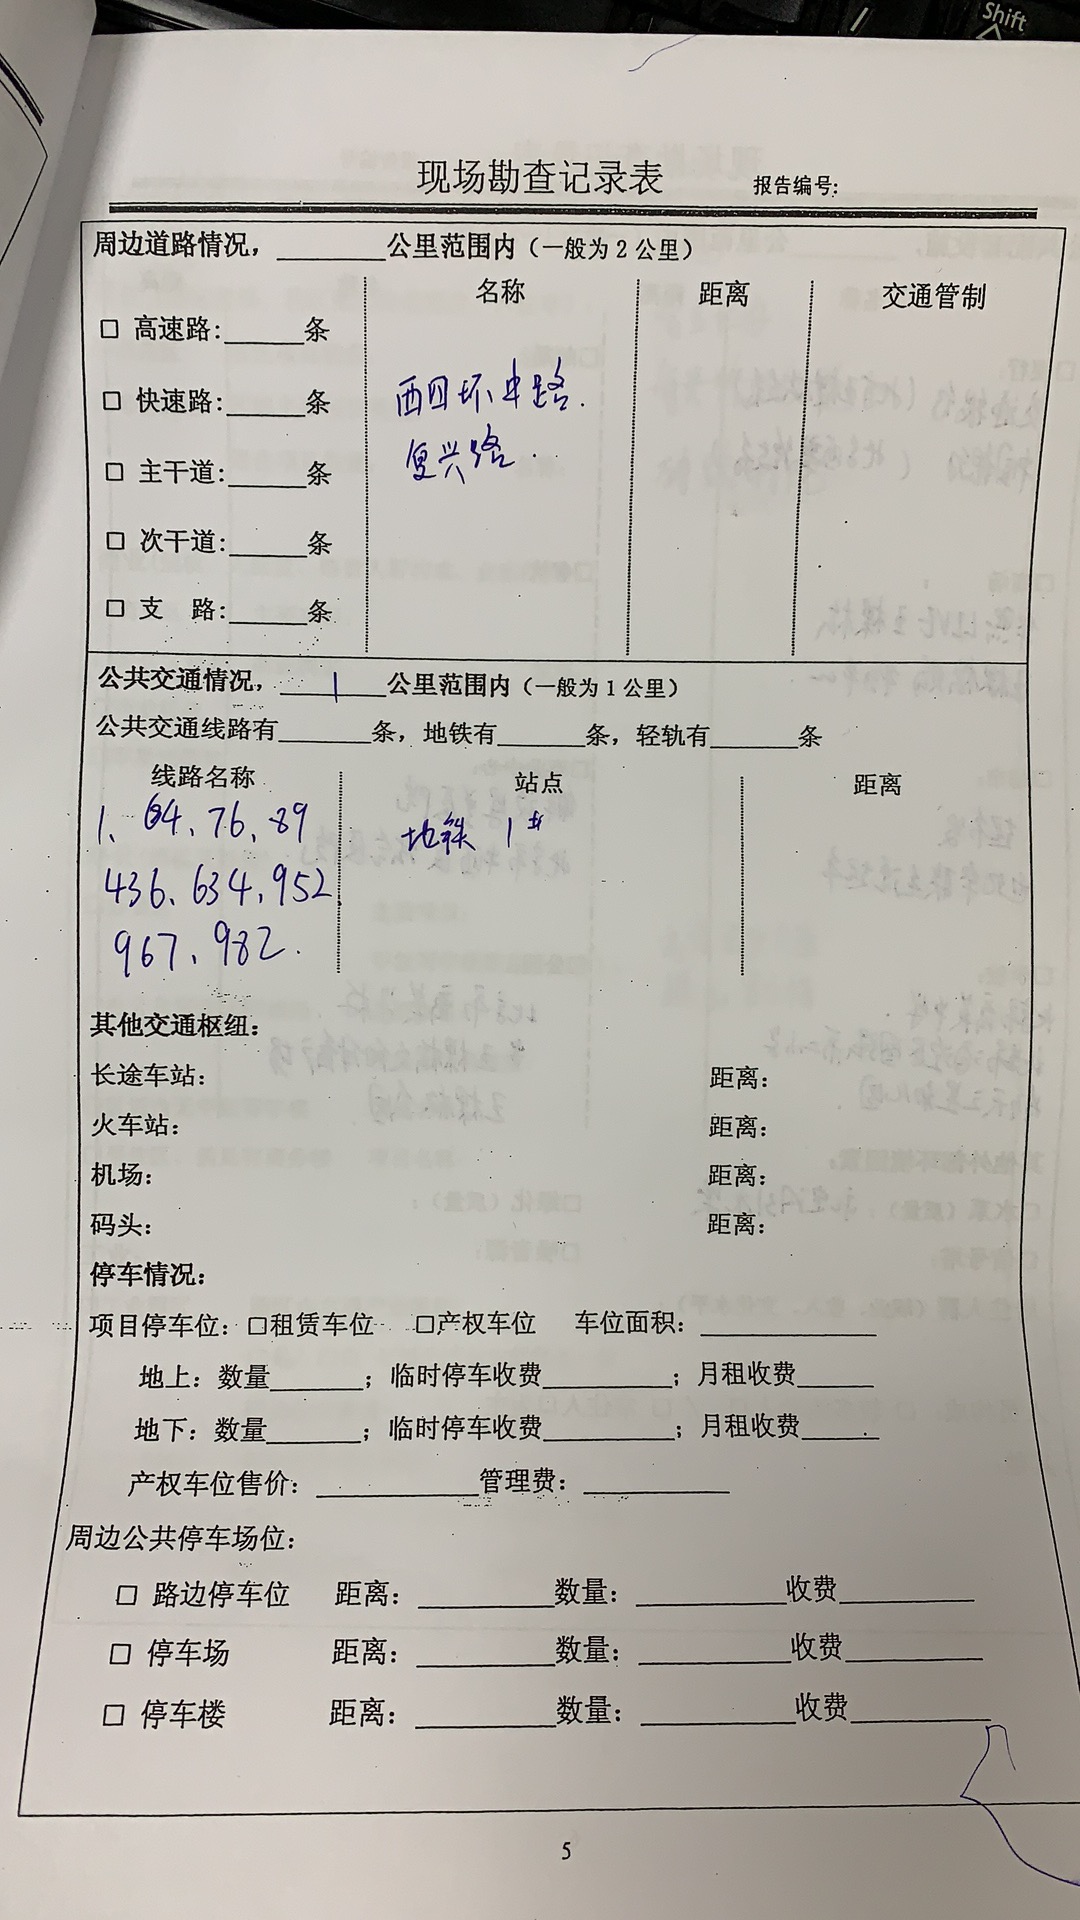 Shift
现场勘查记录表 报告编号:
周边道路情况，________公里范围内（一般为2公里）
名称 距离 交通管制
□ 高速路:______条
□ 快速路:______条 西四环中路.
复兴路.
□ 主干道:______条
□ 次干道:______条
□ 支 路:______条
公共交通情况，____1____公里范围内（一般为1公里）
公共交通线路有_______条，地铁有_______条，轻轨有_______条
线路名称 站点 距离
1、64、76、89 地铁 1#
436、634、952
967、982.
其他交通枢纽:
长途车站: 距离:
火车站: 距离:
机场: 距离:
码头: 距离:
停车情况:
项目停车位: □租赁车位 □产权车位 车位面积:______________
地上: 数量_______; 临时停车收费__________; 月租收费______
地下: 数量_______; 临时停车收费__________; 月租收费______
产权车位售价: ____________管理费: ___________
周边公共停车场位:
□ 路边停车位 距离: __________数量: ___________收费__________
□ 停车场 距离: __________数量: ___________收费__________
□ 停车楼 距离: __________数量: ___________收费__________
5